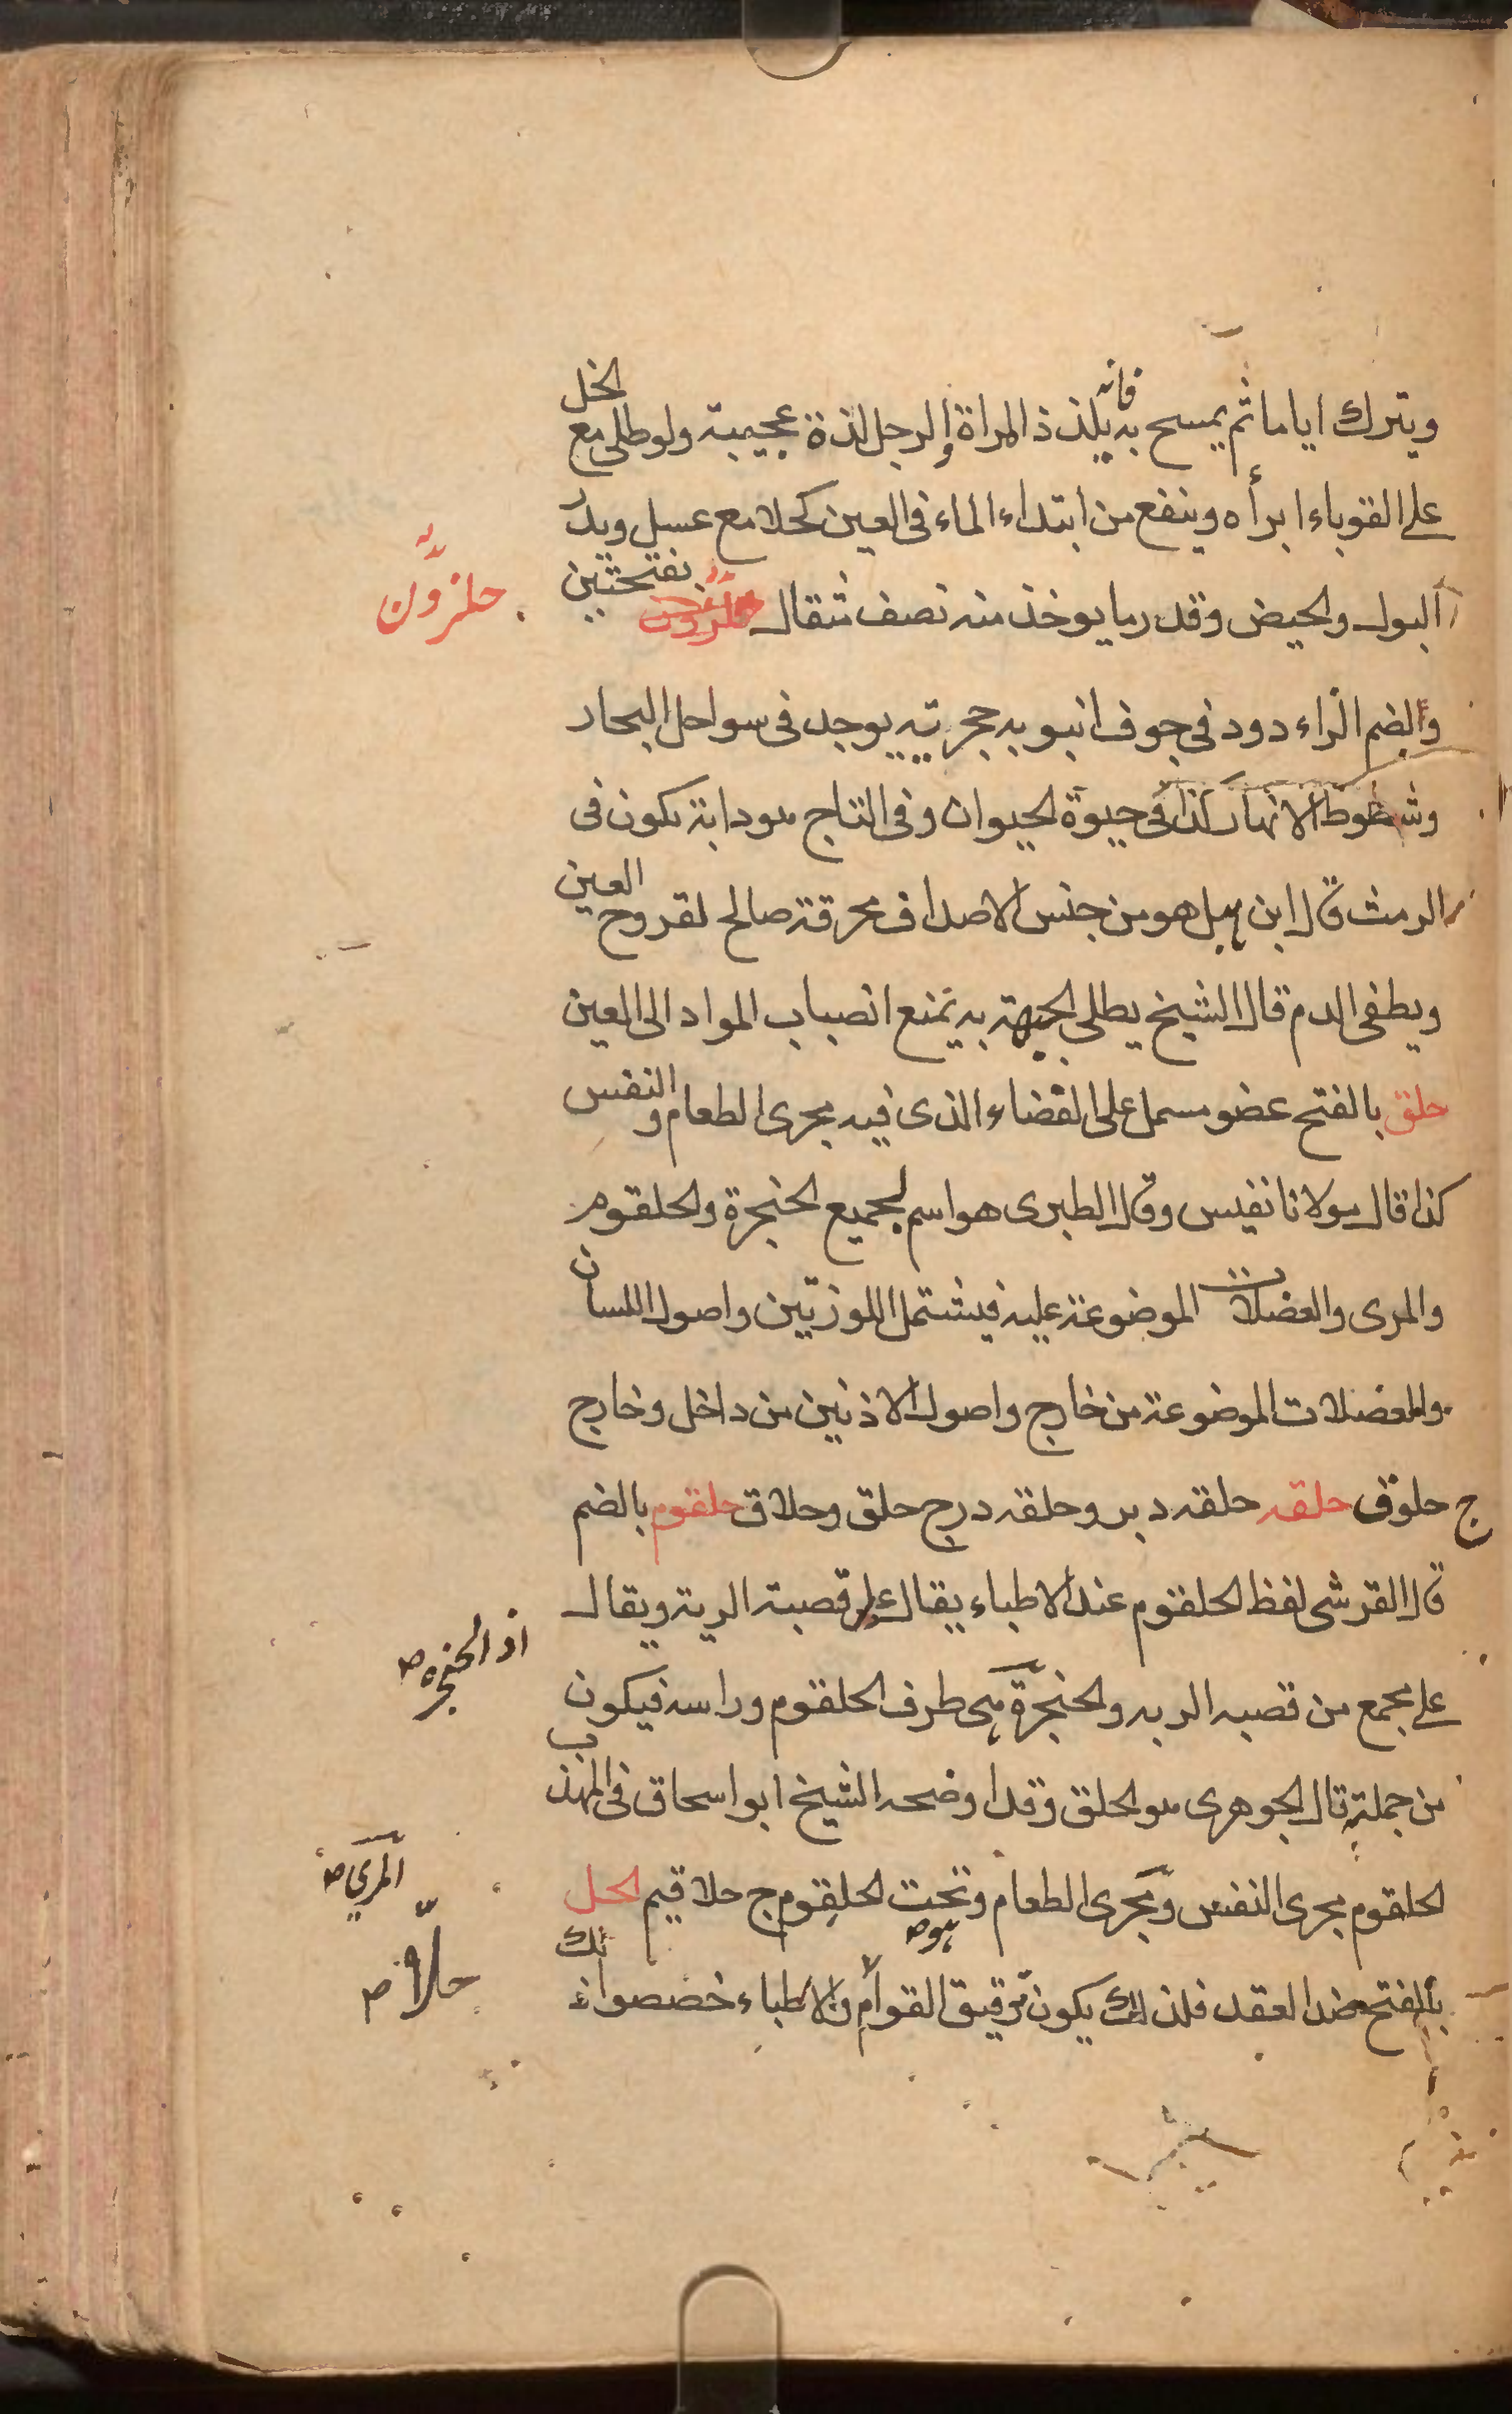 ويترك اياما ثم يمسح به فانه يلذذ المراة والرجل لذة عجيبة ولو طلى مع الخل
على القوباء ابرأه وينفع من ابتداء الماء فى العين كحلا مع عسل ويدر
البول والحيض وقدر ما يوخذ منه نصف مثقال حلزون بفتحتين
حلزون
والضم الزاء دود فى جوف انبوبه حجريته يوجد فى سواحل البحار
وشطوط الانهار كذا فى حيوة الحيوان وفى التاج هو دابة يكون فى
الرمث قال ابن هبل هو من جنس الاصداف محرقته صالح لقروح العين
ويطفى الدم قال الشيخ يطلى الجبهة به يمنع انصباب المواد الى العين
حلق بالفتح عضو مسمل على الفضاء الذى فيه مجرى الطعام والنفس
كذا قال مولانا نفيس وقال الطبرى هو اسم لجميع الحنجرة والحلقوم
والمرى والعضلات الموضوعة عليه فيشتمل اللوزتين واصول اللسان
والعضلات الموضوعة من خارج واصول الاذنين من داخل وخارج
ج حلوق حلقه حلقه دبر وحلقه درج حلق وحلاق حلقوم بالضم
قال القرشى لفظ الحلقوم عند الاطباء يقال على قصبة الرية ويقال
على مجمع من قصبه الريه والحنجرة هى طرف الحلقوم وراسه فيكون
اذ الحنجره ص
من جملته قال الجوهرى هو الحلق وقد اوضحه الشيخ ابو اسحاق فى المهذب
الحلقوم مجرى النفس ومجرى الطعام وتحت الحلقوم ج حلاقيم الحل
المرى ص
هو ص
بالفتح ضد العقد فلذلك يكون رقيق القوام والاطباء خصصوا